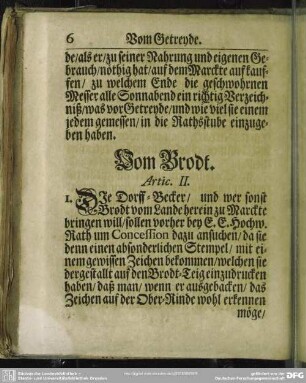 6 Vom Getreyde.
de/als er/zu seiner Nahrung und eigenen Ge-
brauch/nöthig hat/auf dem Marckte auf kauf-
fen/ zu welchem Ende die geschwohrnen
Messer alle Sonnabend ein richtig Verzeich-
niß/was vor Getreyde/und wie viel sie einem
jedem gemessen/in die Rathsstube einzuge-
ben haben.
Vom Brodt.
Artic. II.
1. DIe Dorff-Becker/ und wer sonst
Brodt vom Lande herein zu Marckte
bringen will/sollen vorher bey E. E. Hochw.
Rath um Concession dazu ansuchen/da sie
denn einen absonderlichen Stempel/ mit ei-
nem gewissen Zeichen bekommen/welchen sie
dergestallt auf den Brodt-Teig einzudrucken
haben/ daß man/ wenn er ausgebacken/ das
Zeichen auf der Ober-Rinde wohl erkennen
möge/